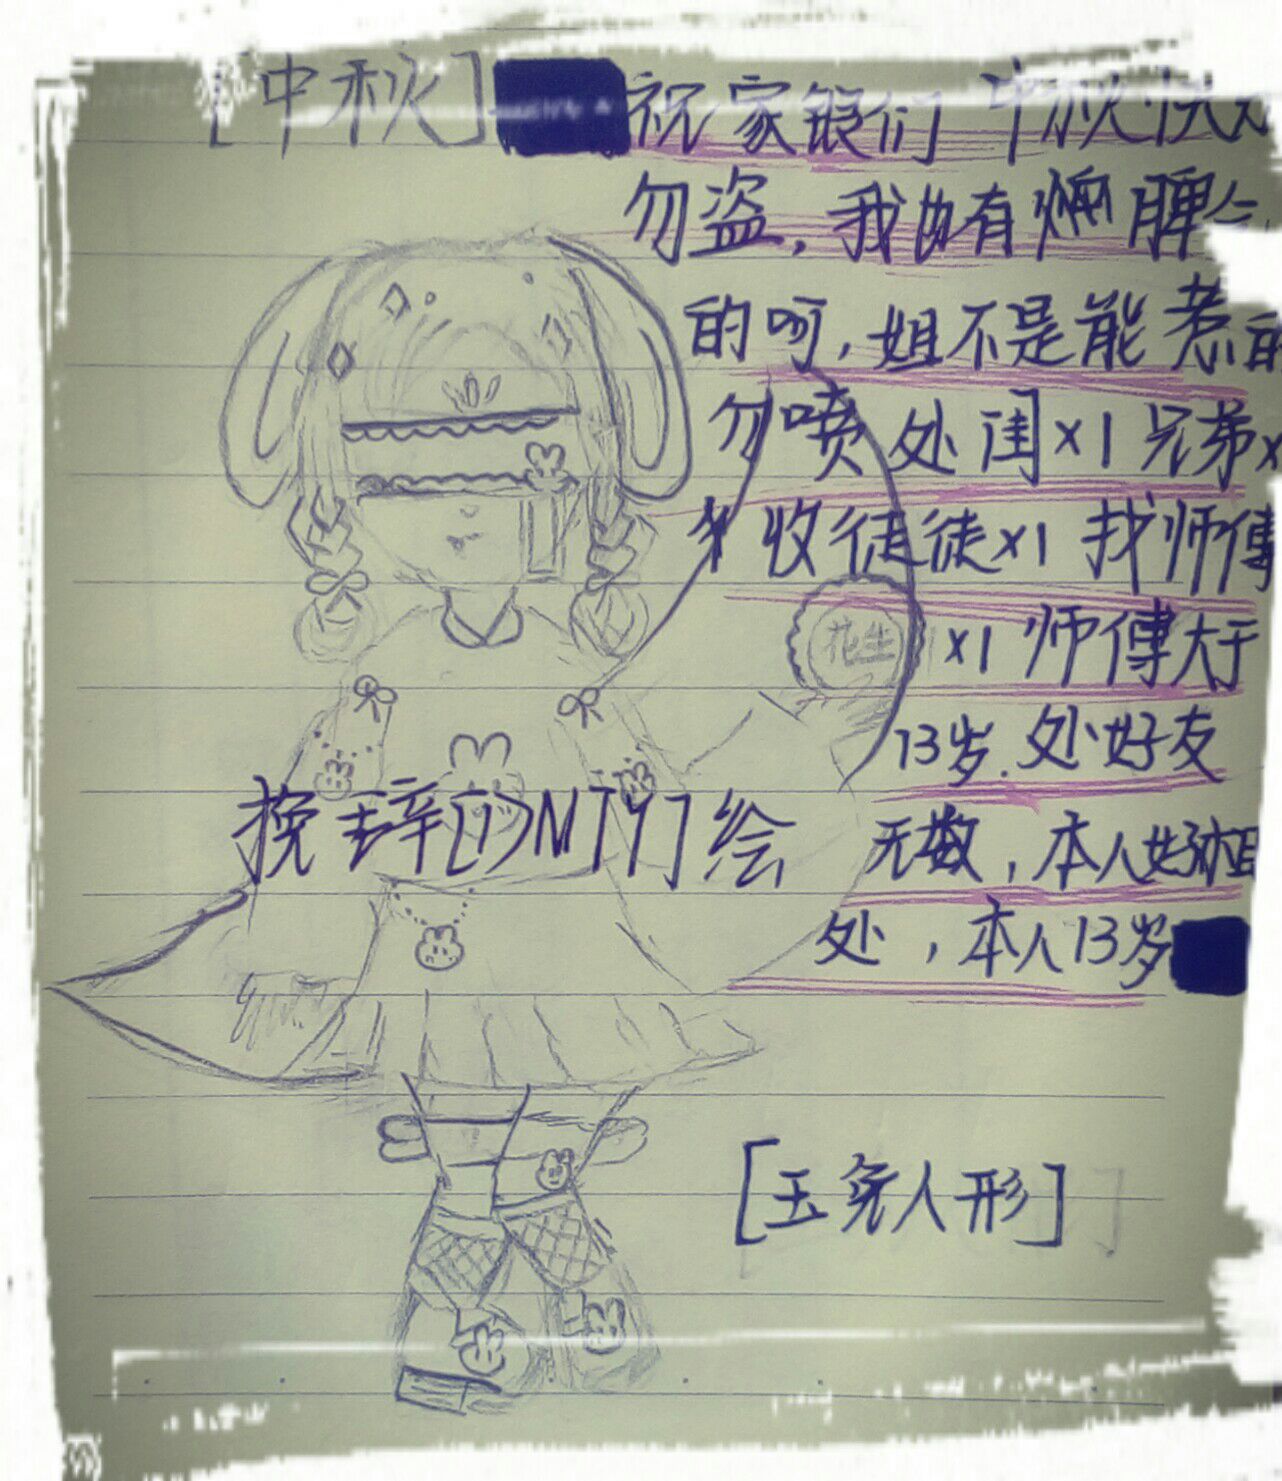 [中秋]
祝家银们 中秋快
勿盗，我也有脾
的呵，姐不是能惹
勿喷 处闺x1 兄弟x
收徒徒x1 找师傅
x1 师傅大于
13岁.处好友
无数，本人好相
处，本人13岁
花生
挽辞 绘
[玉兔人形]